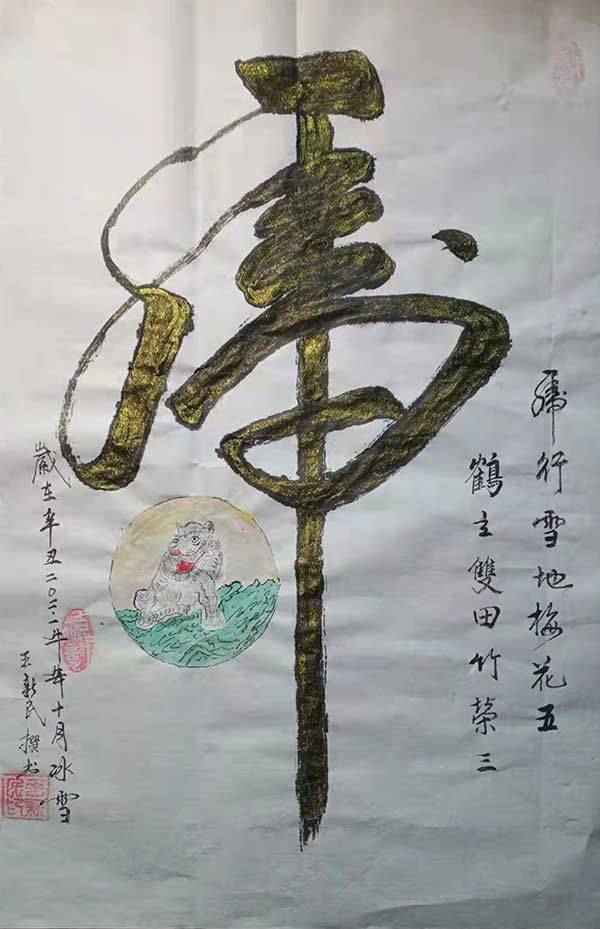 虎
虎行雪地梅花五
鶴立雙田竹葉三
歲在辛丑二〇二一年十月冰雪
王新民撰书